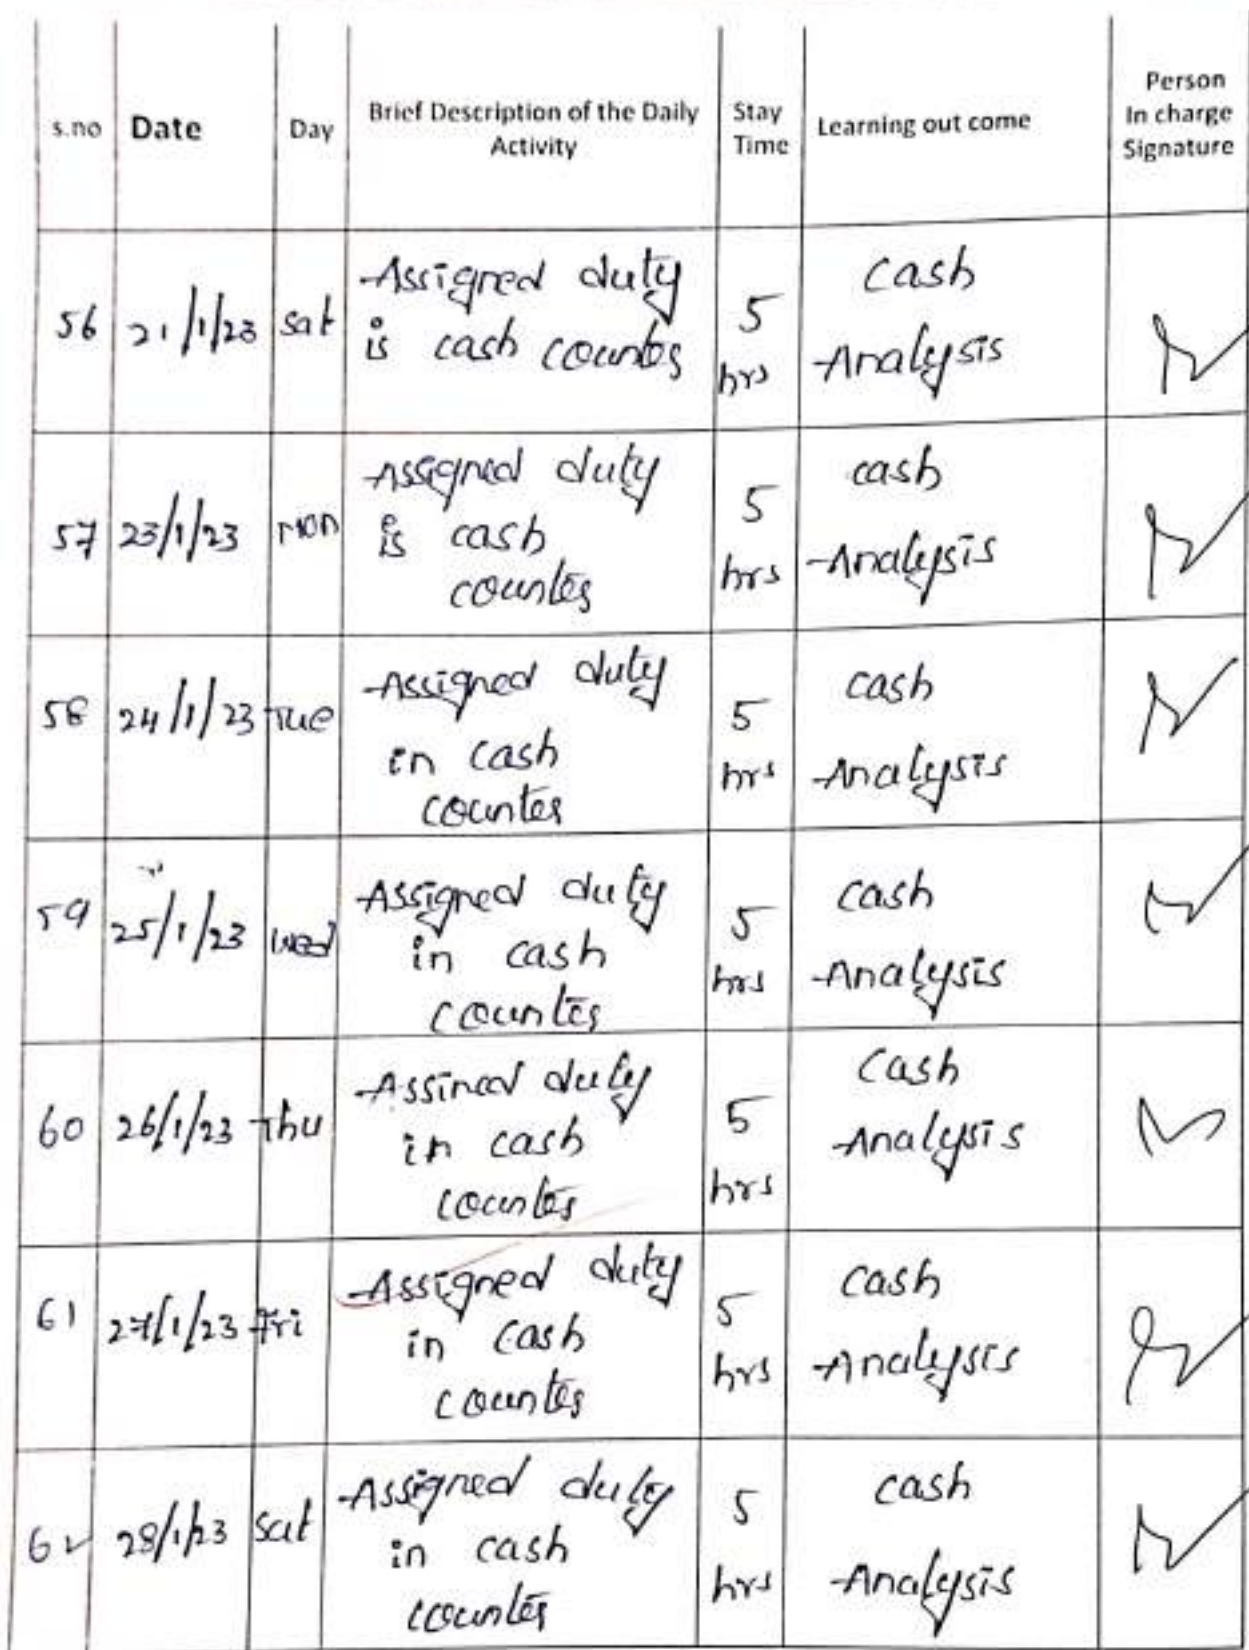 s.no Date Day Brief Description of the Daily Activity Stay Time Learning out come Person In charge Signature
56 21/1/23 Sat Assigned duty is cash counter 5 hrs Cash Analysis
57 23/1/23 Mon Assigned duty is cash counter 5 hrs cash Analysis
58 24/1/23 Tue Assigned duty in cash counter 5 hrs cash Analysis
59 25/1/23 wed Assigned duty in cash counter 5 hrs cash Analysis
60 26/1/23 Thu Assined duty in cash counter 5 hrs Cash Analysis
61 27/1/23 Fri Assigned duty in cash counter 5 hrs cash Analysis
62 28/1/23 Sat Assigned duty in cash counter 5 hrs cash Analysis